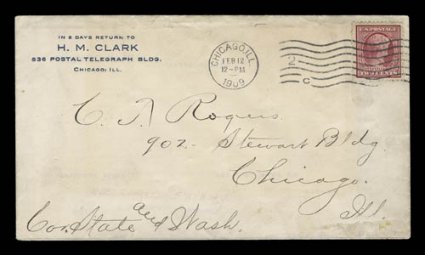 IN 5 DAYS RETURN TO
H. M. CLARK
836 POSTAL TELEGRAPH BLDG.
CHICAGO, ILL.
CHICAGO, ILL.
FEB 12
12-PM
1909
2
C
U.S. POSTAGE
TWO CENTS
C. T. Rogers
902 - Stewart Bldg.
Chicago.
Ill.
Cor. State and Wash.